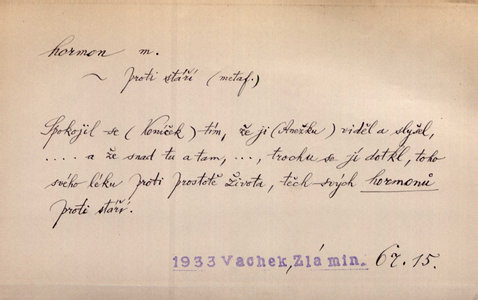 hormon m.
~ proti stáří (metaf.)
Spokojil se (Koníček) tím, že ji (Anežku) viděl a slyšel,
..... a že snad tu a tam, ..., trochu se jí dotkl, toho
svého léku proti prostotě života, těch svých hormonů
proti stáří.
1933 Vachek, Zlá min. 67. 15.